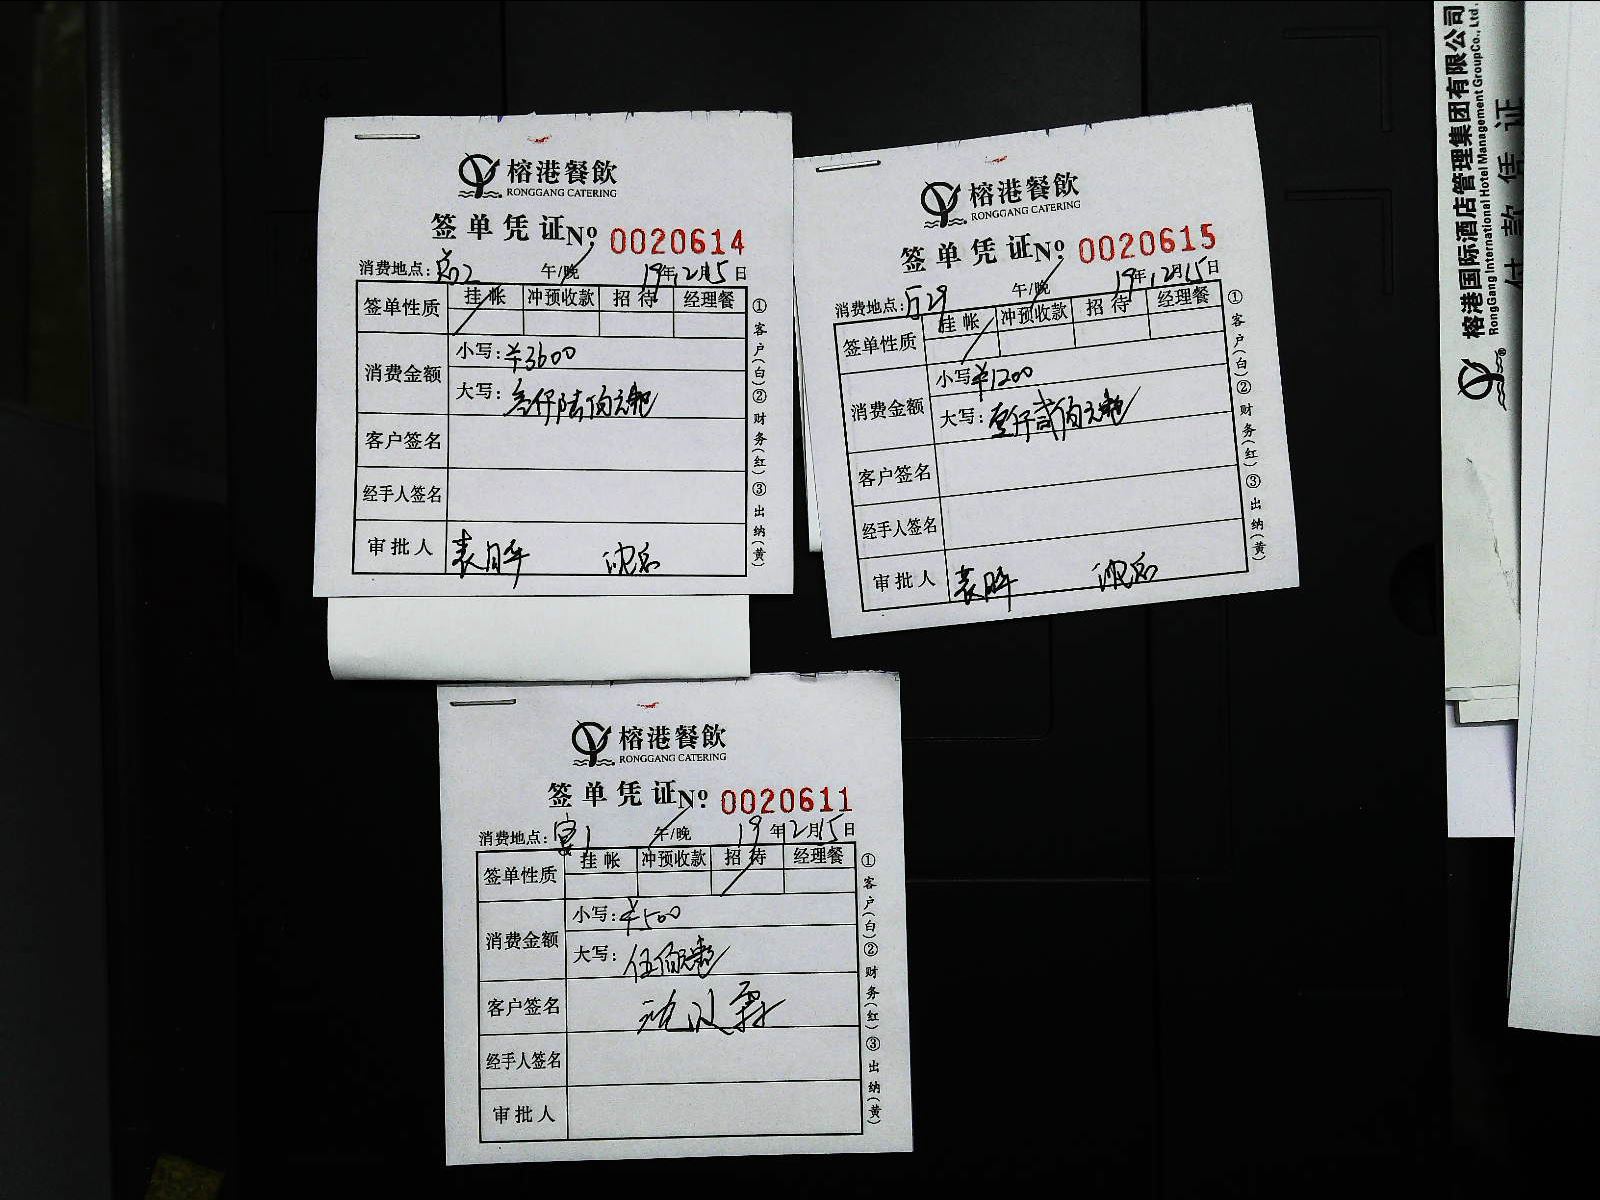 榕港餐飲
RONGGANG CATERING
签单凭证 No 0020614
消费地点: 午/晚 19年12月15日
签单性质 挂帐 冲预收款 招待 经理餐
消费金额 小写: ¥3600
大写: 叁仟陆佰元
客户签名
经手人签名
审批人
①客户(白)②财务(红)③出纳(黄)
榕港餐飲
RONGGANG CATERING
签单凭证 No 0020615
消费地点: 午/晚 19年12月15日
签单性质 挂帐 冲预收款 招待 经理餐
消费金额 小写 ¥1200
大写: 壹仟贰佰元
客户签名
经手人签名
审批人
①客户(白)②财务(红)③出纳(黄)
榕港餐飲
RONGGANG CATERING
签单凭证 No 0020611
消费地点: 宴1 午/晚 19年12月15日
签单性质 挂帐 冲预收款 招待 经理餐
消费金额 小写: ¥500
大写: 伍佰元
客户签名
经手人签名
审批人
①客户(白)②财务(红)③出纳(黄)
榕港国际酒店管理集团有限公司
RongGang International Hotel Management GroupCo., Ltd.
付款凭证